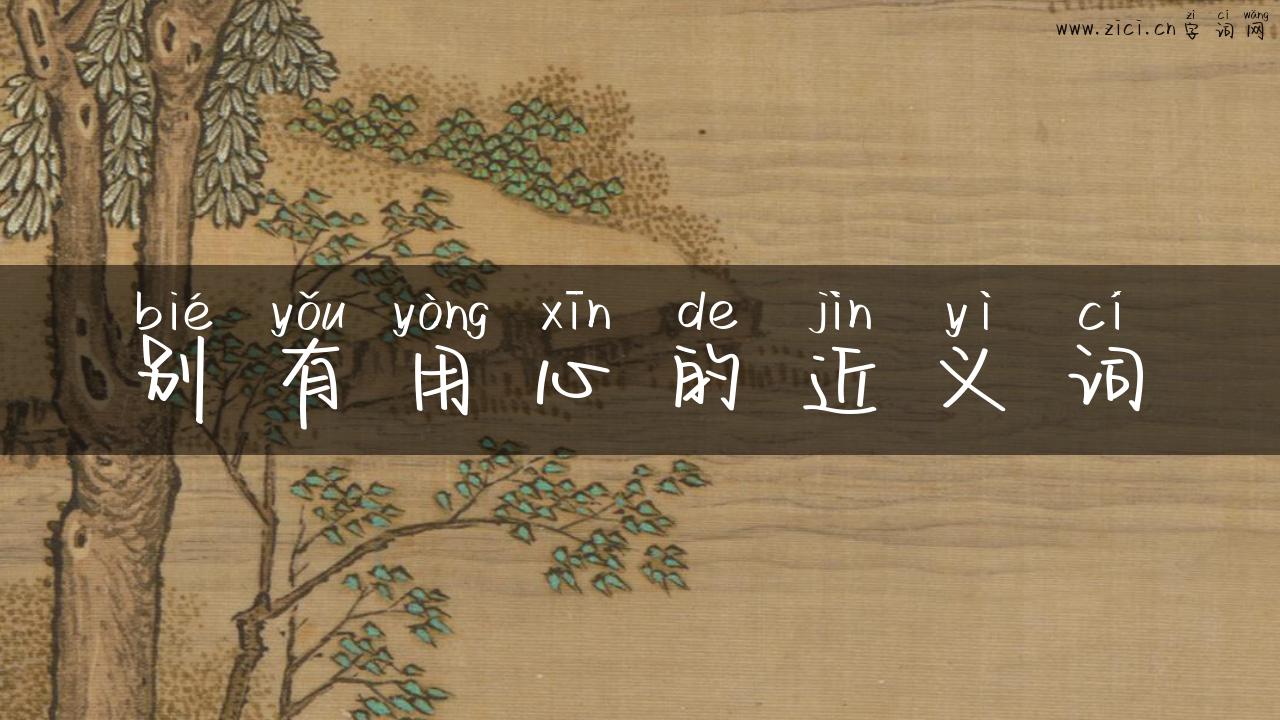 zì cí wǎng
www.zici.cn 字词网
bié yǒu yòng xīn de jìn yì cí
别有用心的近义词